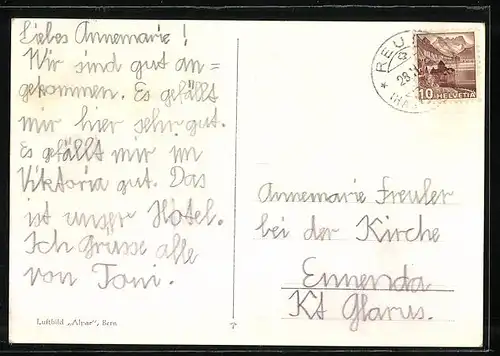 Liebes Annemarie!
Wir sind gut an=
gekommen. Es gefällt
mir hier sehr gut.
Es gefällt mir im
Viktoria gut. Das
ist unser Hotel.
Ich Grüsse alle
von Toni.
Luftbild „Alpar", Bern
REU
28
(HAS
10 HELVETIA
Annemarie Freuler
bei der Kirche
Ennenda
Kt Glarus.